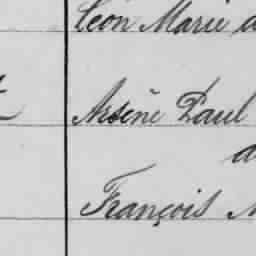 Léon Marie
Arsène Paul
François